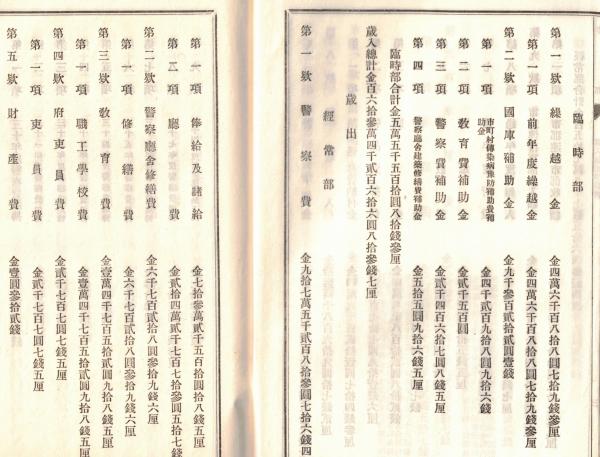 臨時部
第一欵 繰越金 金四萬六千百八拾八圓七拾九錢參厘
第一項 前年度繰越金 金四萬六千百八拾八圓七拾九錢參厘
第二欵 國庫補助金 金九千參百貳拾貳圓壹錢
第一項 市町村傳染病豫防補助費補助金 金四千貳百九拾八圓九拾六錢
第二項 敎育費補助金 金貳千五百圓
第三項 警察費補助金 金貳千四百六拾七圓八錢五厘
第四項 警察廳舍建築修繕費補助金 金五拾五圓九拾六錢五厘
臨時部合計金五萬五千五百拾圓八拾錢參厘
歲入總計金百六拾參萬四千貳百六拾六圓八拾參錢七厘
歲出
經常部
第一欵 警察費 金九拾七萬五千貳百八拾參圓七拾六錢四
第一項 俸給及諸給 金七拾參萬貳千五百拾圓拾八錢五厘
第二項 廳費 金貳拾四萬貳千七百七拾參圓五拾七錢
第二欵 警察廳舍修繕費 金六千七百貳拾八圓參拾九錢六厘
第一項 修繕費 金六千七百貳拾八圓參拾九錢六厘
第三欵 敎育費 金壹萬四千七百五拾貳圓九拾八錢五厘
第一項 職工學校費 金壹萬四千七百五拾貳圓九拾八錢五厘
第四欵 府吏員費 金貳千七百七圓七錢五厘
第一項 吏員費 金貳千七百七圓七錢五厘
第五欵 財產費 金壹圓參拾貳錢